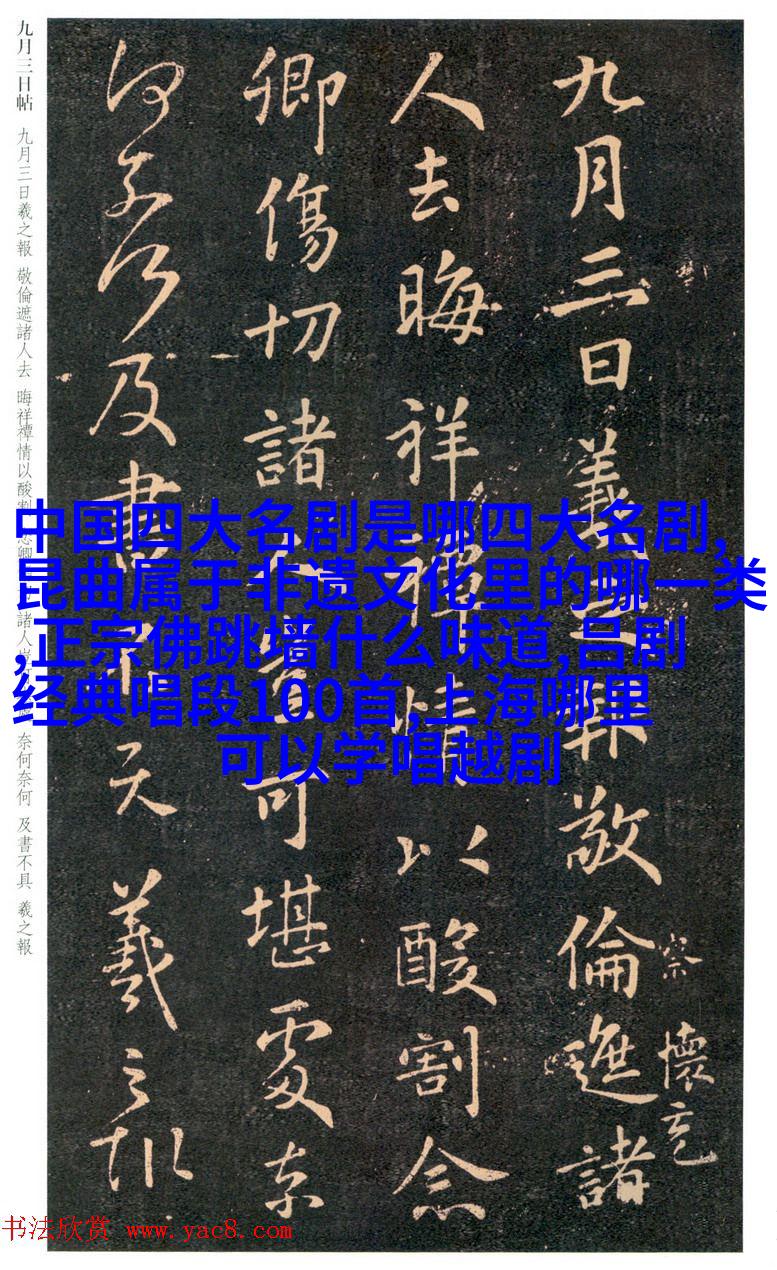 九月三日羲之報敬倫遮諸
察懷充
人去晦祥禫情以酸割念
卿傷切諸人豈可堪處奈
何奈何及書不具羲之報
九月三日帖 九月三日羲之報 敬倫遮諸人去 晦祥禫情以酸割 諸人豈 奈何奈何 及書不具 羲之報
中国四大名剧是哪四大名剧,
昆曲属于非遗文化里的哪一类
,正宗佛跳墙什么味道,吕剧
经典唱段100首,上海哪里
可以学唱越剧
书法欣赏 www.yac8.com